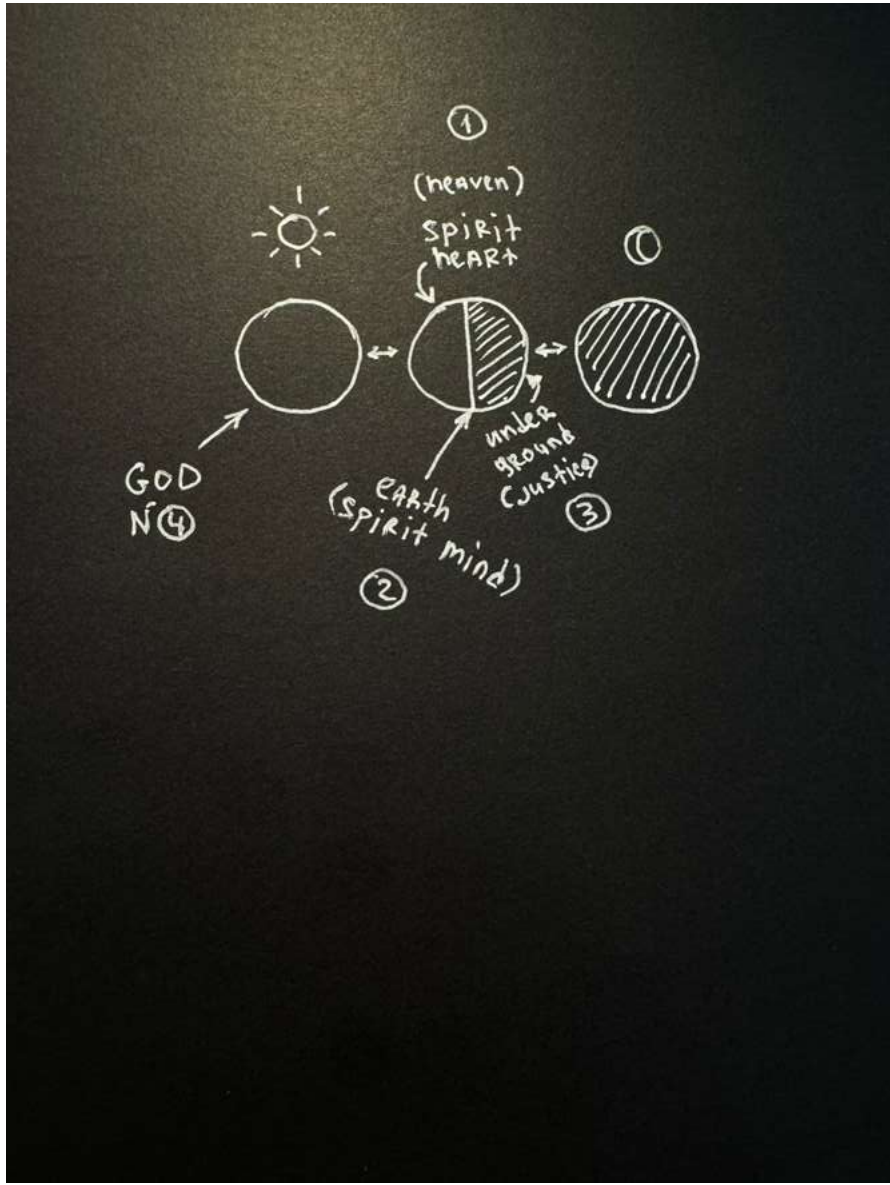 1
(heaven)
spirit
heart
GOD
N°4
earth
(spirit mind)
2
under
ground
(Justice)
3